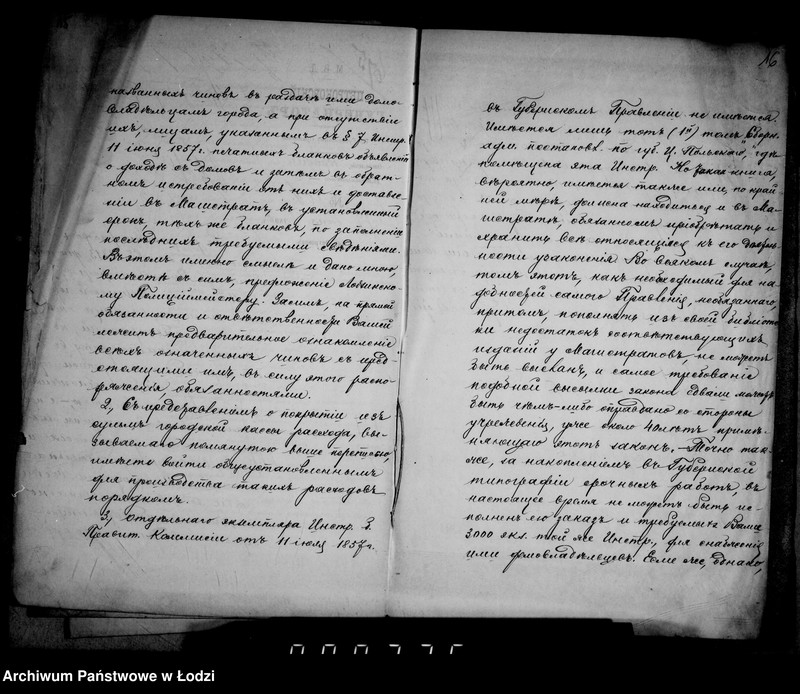 названныхъ чиновъ въ раздачѣ ими домо-
владѣльцамъ города, а при отсутствіи
ихъ, лицамъ, указаннымъ въ § 7 Инстр.
11 іюня 1857 г. печатныхъ бланковъ объявленій
о доходѣ съ домовъ и затѣмъ въ обрат-
номъ истребованіи отъ нихъ и доставле-
ніи въ Магистратъ, въ установленный
срокъ, тѣхъ же бланковъ, по заполненіи
послѣднихъ требуемыми свѣдѣніями.
Въ этомъ именно смыслѣ и дано мною,
вмѣстѣ съ симъ, предложеніе Лодзинско-
му Полиціймейстеру. Засимъ, на прямой
обязанности и отвѣтственности Вашей
лежитъ предварительное ознакомленіе
всѣхъ означенныхъ чиновъ съ пред-
стоящими имъ, въ силу этого распо-
ряженія, обязанностями.
2, Съ представленіемъ о покрытіи изъ
суммъ городской кассы расхода, вы-
зываемаго помянутою выше переписью,
имѣете войти общеустановленнымъ
для производства такихъ расходовъ
порядкомъ.
3, Отдѣльнаго экземпляра Инстр.
Правит. Коммисіи отъ 11 іюля 1857 г.
16
въ Губернскомъ Правленіи не имѣется.
Имѣется лишь тотъ (1й) томъ Сборн.
адм. постановл. по губ. Ц. Польскаго, гдѣ
помѣщена эта Инстр. Но такая книга,
вѣроятно, имѣется также или, по край-
ней мѣрѣ, должна находиться и въ Ма-
гистратѣ, обязанномъ пріобрѣтать и
хранить всѣ относящіяся къ его дѣятель-
ности узаконенія. Во всякомъ случаѣ,
томъ этотъ, какъ необходимый для на-
добностей самого Правленія, необязаннаго,
притомъ, пополнять изъ своей библіоте-
ки недостатокъ соотвѣтствующихъ
изданій у Магистратовъ, не можетъ
быть высланъ, и самое требованіе
подобной высылки закона едвали можетъ
быть чѣмъ-либо оправдано со стороны
учрежденія, уже около 40 лѣтъ примѣ-
няющаго этотъ законъ, — Точно так-
же, за накопленіемъ въ Губернской
типографіи срочныхъ работъ, въ
настоящее время не можетъ быть ис-
полненъ ею заказъ и требуемыхъ Вами
3000 экз. той же Инстр., для снабженія
ими домовладѣльцевъ. Если же, однако,
000775
Archiwum Państwowe w Łodzi